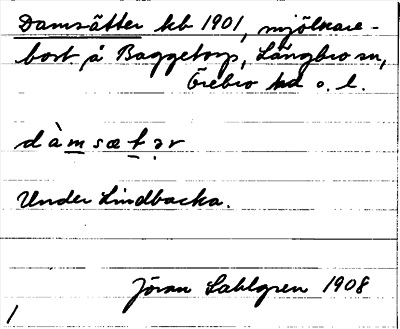 Damsätter kb 1901, mjölnare-
bost. å Baggetorp, Längbro sn,
Örebro hd o. l.
dàmsætər
Under Lindbacka.
Jöran Sahlgren 1908
1